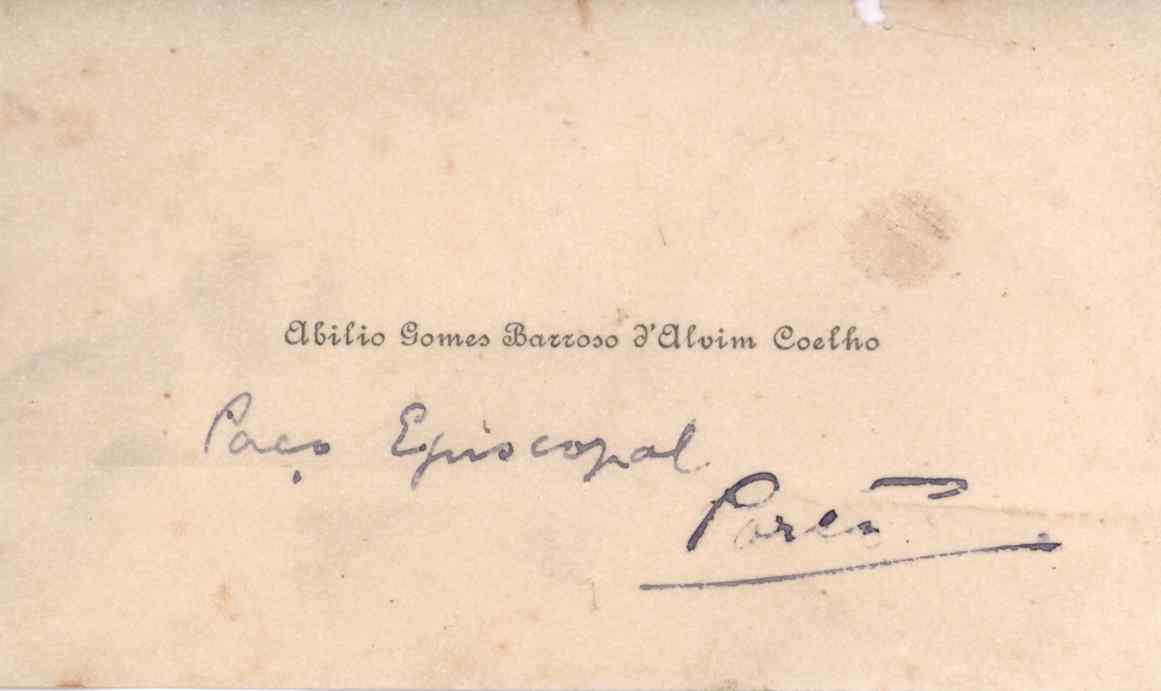 Abilio Gomes Barroso d'Alvim Coelho
Paço Episcopal
Porto